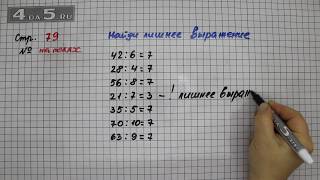 4DA5.RU
Стр. 79
№ на полях
Найди лишнее выражение
42:6=7
28:4=7
56:8=7
21:7=3 - ! лишнее выраж
35:5=7
70:10=7
63:9=7